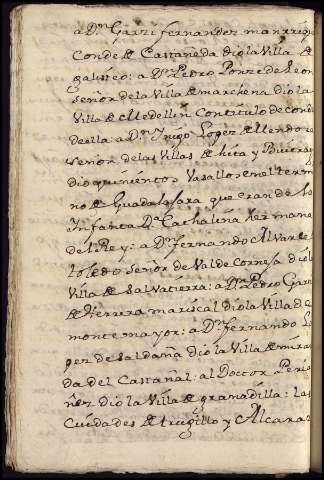 a Dn. Garzi fernandez manrriq
Conde de Castañeda dio la Villa de
galisteo: a Dn. Pedro Ponze de Leon
Señor de la Villa de marchena dio la
Villa de Medellin Con titulo de cond
de ella a Dn. Iñigo Lopez de Mendo
Señor de las Villas de hita y Buitrag
dio quinientos Vasallos en el term
no de Guadalaxara que eran de la
Infanta Da. Cathalina hermana
del Rey: a Dn. fernando Alvarez
toledo Señor de Valde Corneja dio la
Villa de Salvatierra: a Dn. Pedro Garzi
de Herrera mariscal dio la Villa de
montemayor: a Dn. fernando Lo
pez de Saldaña dio la Villa de mira
da del Castañal: al Doctor Peria
ñez dio la Villa de granadilla: las
Ciudades de trugillo y Alcaraz